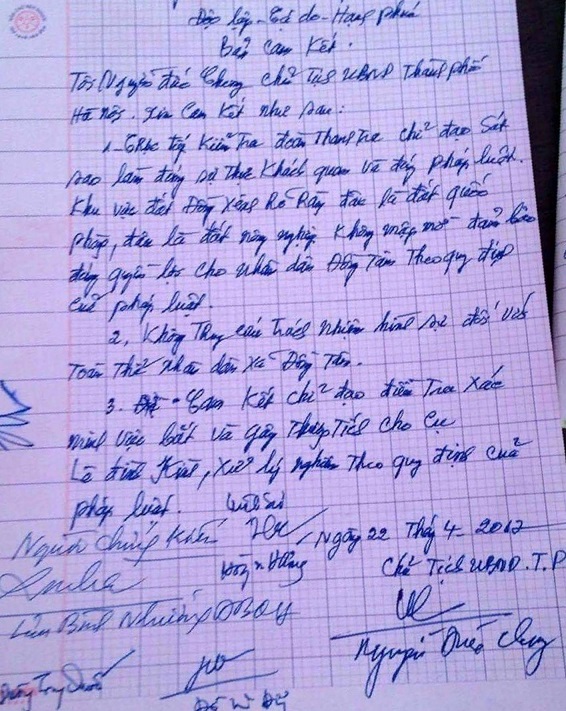 Độc lập - Tự do - Hạnh phúc
Bản Cam Kết.
Tôi Nguyễn Đức Chung chủ Tịch UBND Thành phố
Hà Nội. Xin Cam Kết như sau:
1. Trực tiếp Kiểm Tra đoàn Thanh Tra chỉ đạo Sát
sao làm đúng sự Thật Khách quan và đúng pháp luật.
Khu vực đất Đồng Sênh Rõ Ràng đâu là đất quốc
phòng, đâu là đất nông nghiệp. Không mập mờ đảm bảo
đúng quyền lợi cho nhân dân Đồng Tâm Theo quy định
của pháp luật.
2, Không Truy cứu Trách nhiệm hình sự đối với
Toàn Thể nhân dân Xã Đồng Tâm.
3. - Cam Kết chỉ đạo điều Tra Xác
minh việc bắt và gây Thương Tích cho Cụ
Lê Đình Kình, Xử lý nghiêm Theo quy định của
pháp luật.
Người chứng kiến
Ngày 22 Thg 4 - 2017
Chủ Tịch UBND.T.P
Lưu Bình Nhưỡng ĐBQH
Nguyễn Đức Chung